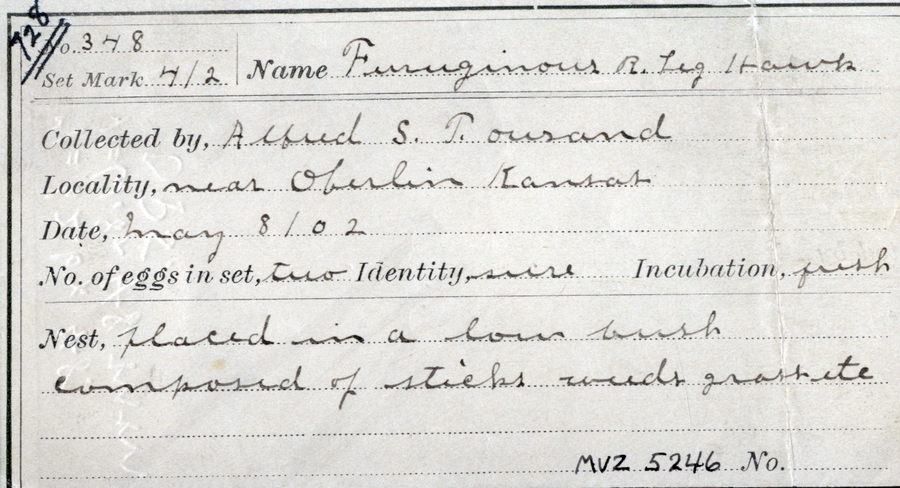 728
No. 348
Set Mark 4/2 Name Ferruginous R. Leg Hawk
Collected by, Alfred S.
Locality, near Oberlin Kansas
Date, May 8/02
No. of eggs in set, two Identity, sure Incubation, fresh
Nest, placed in a low bush
composed of sticks weeds grass etc
MVZ 5246 No.